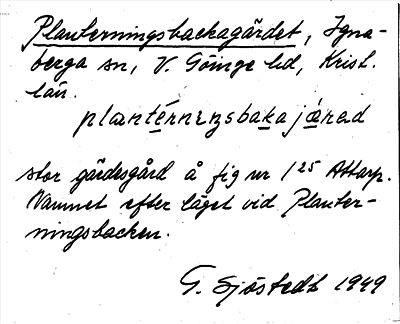 Planterningsbackagärdet, Igna-
berga sn, V. Göinge hd, Krist.
län.
plæntérnıŋsbaka jǽrad
stor gärdesgård å fig nr 1 25 Attarp.
Namnet efter läget vid Planter-
ningsbacken.
G. Sjöstedt 1949